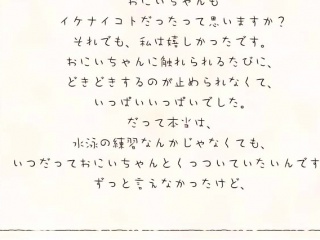 おにいちゃんも
イケナイコトだったって思いますか？
それでも、私は嬉しかったです。
おにいちゃんに触れられるたびに、
どきどきするのが止められなくて、
いっぱいいっぱいでした。
だって本当は、
水泳の練習なんかじゃなくても、
いつだっておにいちゃんとくっついていたいんです
ずっと言えなかったけど、